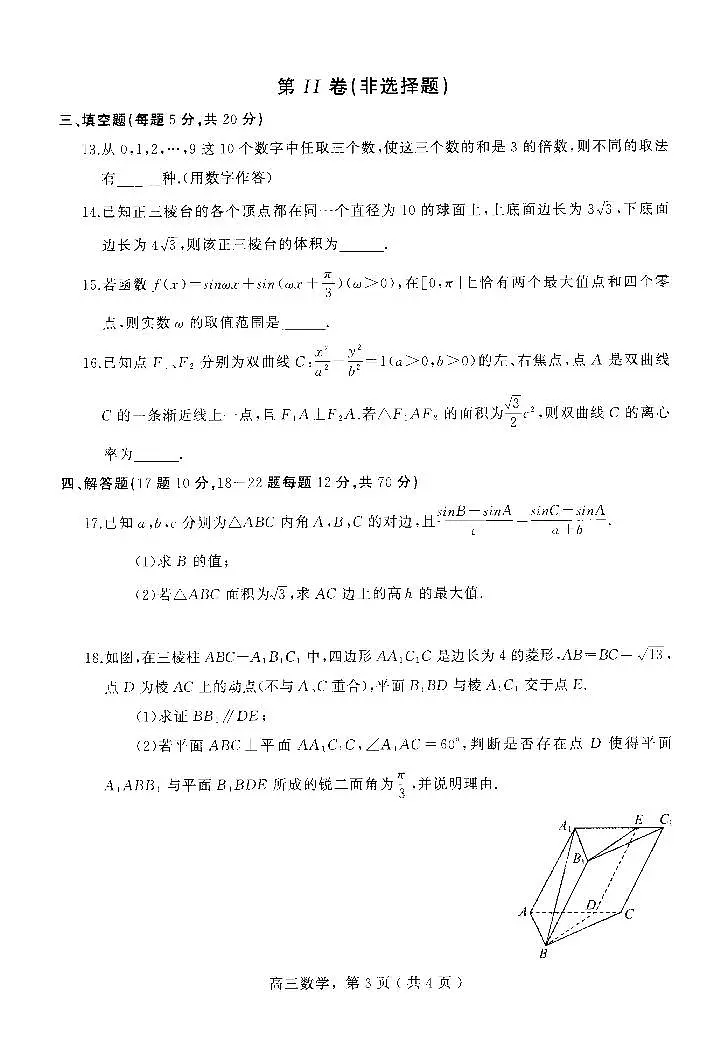 第 II 卷(非选择题)
三、填空题(每题 5 分,共 20 分)
13.从 0,1,2,…,9 这 10 个数字中任取三个数,使这三个数的和是 3 的倍数,则不同的取法
有______种.(用数字作答)
14.已知正三棱台的各个顶点都在同一个直径为 10 的球面上,上底面边长为 3√3,下底面
边长为 4√3,则该正三棱台的体积为______.
15.若函数 f(x)=sinωx+sin(ωx+π/3)(ω>0),在[0,π]上恰有两个最大值点和四个零
点,则实数 ω 的取值范围是______.
16.已知点 F₁、F₂ 分别为双曲线 C:x²/a²-y²/b²=1(a>0,b>0)的左、右焦点,点 A 是双曲线
C 的一条渐近线上一点,且 F₁A⊥F₂A.若△F₁AF₂ 的面积为 √3/2 c²,则双曲线 C 的离心
率为______.
四、解答题(17 题 10 分,18-22 题每题 12 分,共 70 分)
17.已知 a,b,c 分别为△ABC 内角 A,B,C 的对边,且 (sinB-sinA)/c=(sinC-sinA)/(a+b).
(1)求 B 的值;
(2)若△ABC 面积为√3,求 AC 边上的高 h 的最大值.
18.如图,在三棱柱 ABC-A₁B₁C₁ 中,四边形 AA₁C₁C 是边长为 4 的菱形,AB=BC=√13,
点 D 为棱 AC 上的动点(不与 A、C 重合),平面 B₁BD 与棱 A₁C₁ 交于点 E.
(1)求证 BB₁∥DE;
(2)若平面 ABC⊥平面 AA₁C₁C,∠A₁AC=60°,判断是否存在点 D 使得平面
A₁ABB₁ 与平面 B₁BDE 所成的锐二面角为 π/3,并说明理由.
A₁ E C₁
B₁
A D C
B
高三数学, 第 3 页 ( 共 4 页 )